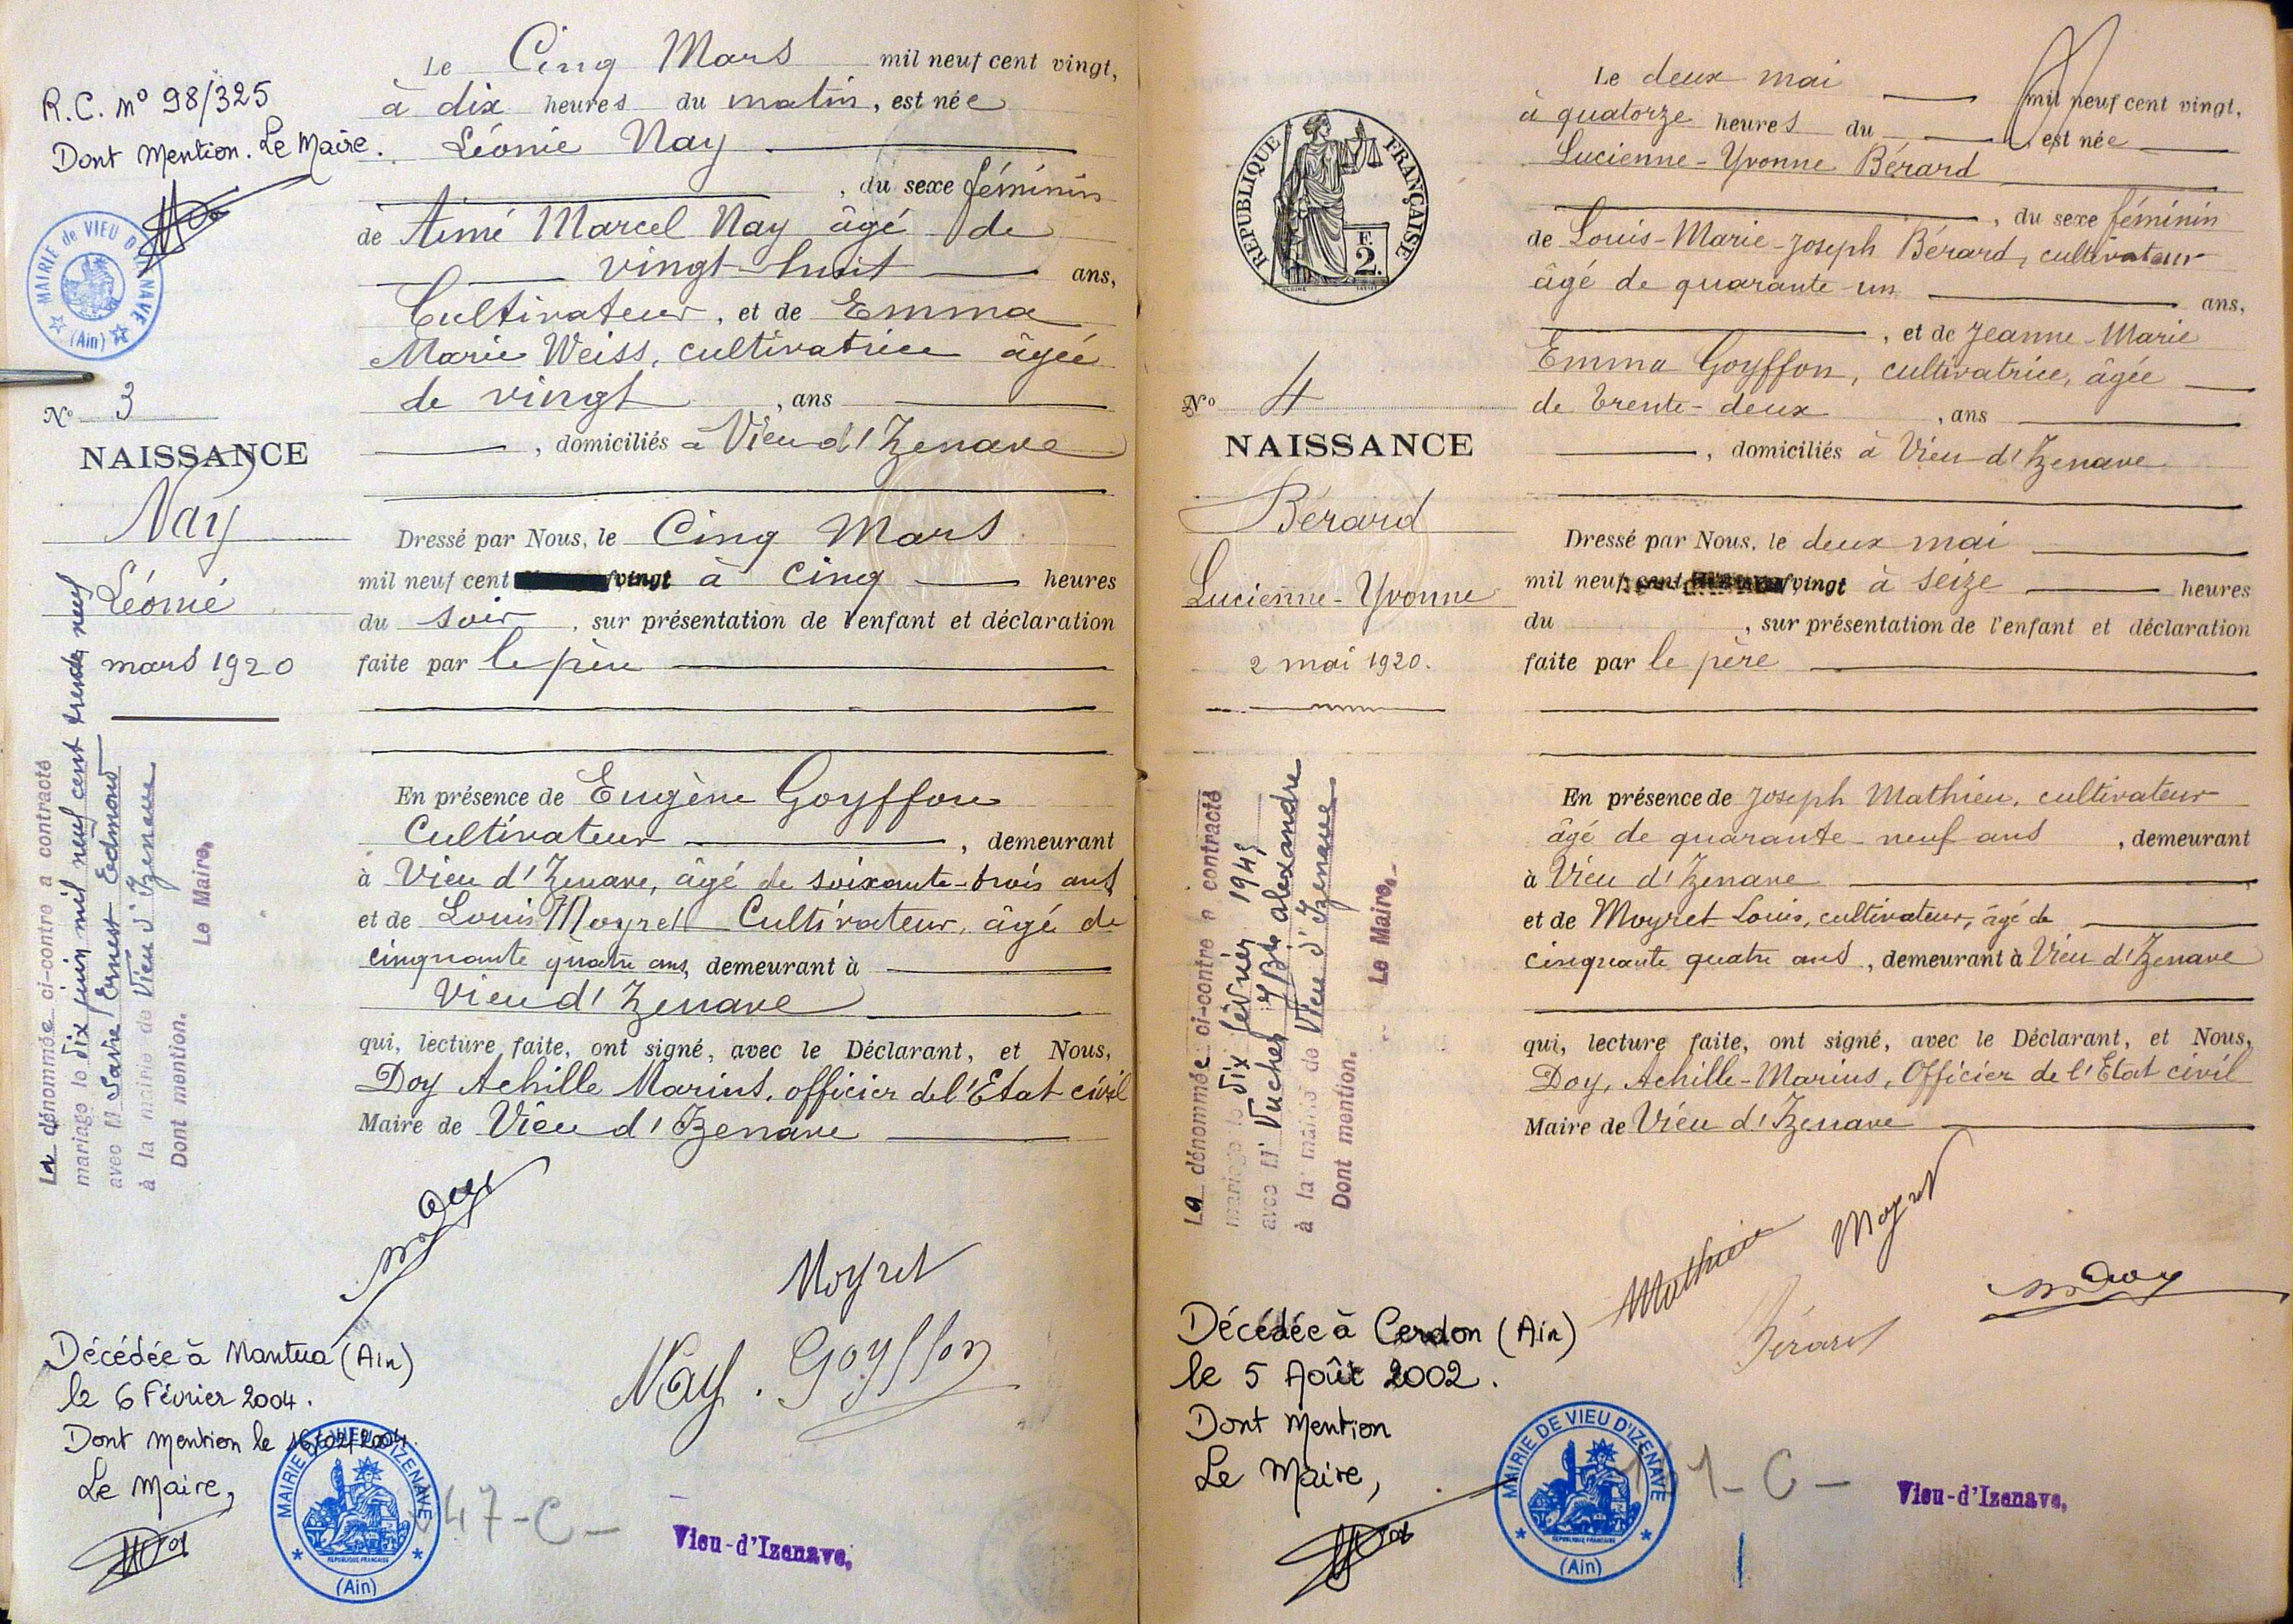 R.C. n° 98/325
Dont mention. Le Maire.
MAIRIE de VIEU D'IZENAVE
(Ain)
N° 3
NAISSANCE
Nay
Léonie
mars 1920
La dénommée ci-contre a contracté
mariage le dix juin mil neuf cent trente neuf
avec M Savie Ernest Edmond
à la mairie de Vieu d'Izenave
Dont mention.
Le Maire,
Le Cinq Mars mil neuf cent vingt,
à dix heures du matin, est née
Léonie Nay
, du sexe féminin
de Aimé Marcel Nay âgé de
vingt-huit ans,
Cultivateur, et de Emma
Marie Weiss, cultivatrice âgée
de vingt , ans
, domiciliés à Vieu d'Izenave
Dressé par Nous, le Cinq Mars
mil neuf cent vingt à cinq heures
du soir , sur présentation de l'enfant et déclaration
faite par le père
En présence de Eugène Goyffon
Cultivateur , demeurant
à Vieu d'Izenave, âgé de soixante-trois ans
et de Louis Moyret Cultivateur, âgé de
cinquante quatre ans, demeurant à
Vieu d'Izenave
qui, lecture faite, ont signé, avec le Déclarant, et Nous,
Doy Achille Marius, officier de l'Etat civil
Maire de Vieu d'Izenave
m Doy
Moyret
Nay. Goyffon
Décédée à Nantua (Ain)
le 6 Février 2004.
Dont mention le 16/02/2004.
Le Maire,
MAIRIE DE VIEU D'IZENAVE
REPUBLIQUE FRANCAISE
(Ain)
47-C-
Vieu-d'Izenave,
REPUBLIQUE FRANÇAISE
F.
2.
N° 4
NAISSANCE
Bérard
Lucienne-Yvonne
2 mai 1920.
La dénommée ci-contre a contracté
mariage le dix février 1945
avec M Vucher J Bte alexandre
à la mairie de Vieu d'Izenave
Dont mention.
Le Maire,
Le deux mai mil neuf cent vingt,
à quatorze heures du est née
Lucienne-Yvonne Bérard
, du sexe féminin
de Louis-Marie-Joseph Bérard, cultivateur
âgé de quarante-un ans,
, et de Jeanne-Marie
Emma Goyffon, cultivatrice, âgée
de trente-deux , ans
, domiciliés à Vieu d'Izenave
Dressé par Nous, le deux mai
mil neuf cent vingt à seize heures
du , sur présentation de l'enfant et déclaration
faite par le père
En présence de Joseph Mathieu, cultivateur
âgé de quarante-neuf ans , demeurant
à Vieu d'Izenave
et de Moyret Louis, cultivateur, âgé de
cinquante quatre ans , demeurant à Vieu d'Izenave
qui, lecture faite, ont signé, avec le Déclarant, et Nous,
Doy, Achille-Marius, Officier de l'Etat civil
Maire de Vieu d'Izenave
Mathieu
Moyret
m Doy
Bérard
Décédée à Cerdon (Ain)
le 5 Août 2002.
Dont mention
Le Maire,
MAIRIE DE VIEU D'IZENAVE
REPUBLIQUE FRANCAISE
(Ain)
1-C-
Vieu-d'Izenave,